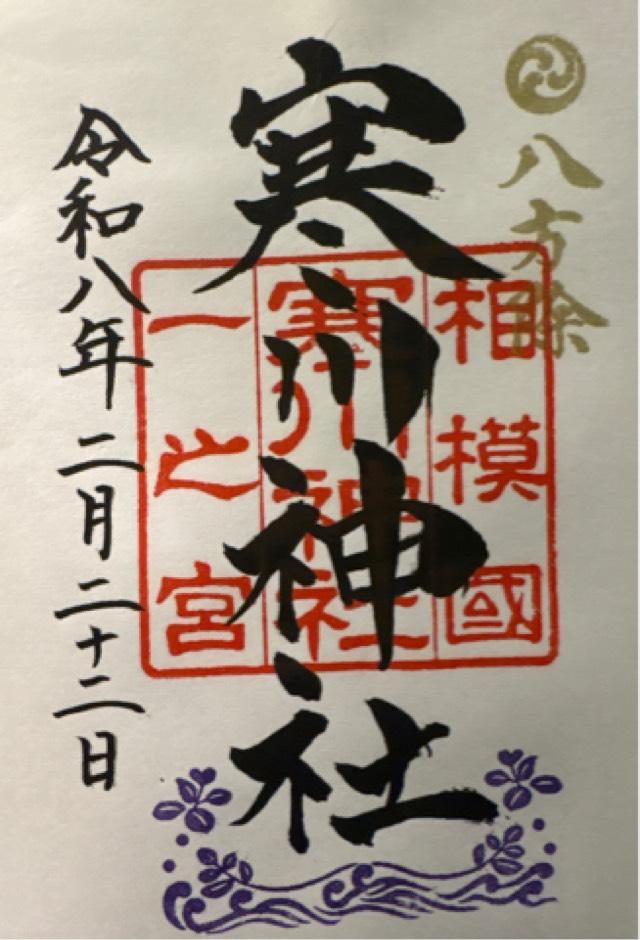 八方除
寒川神社
相模國
寒川神社
一之宮
令和八年二月二十二日